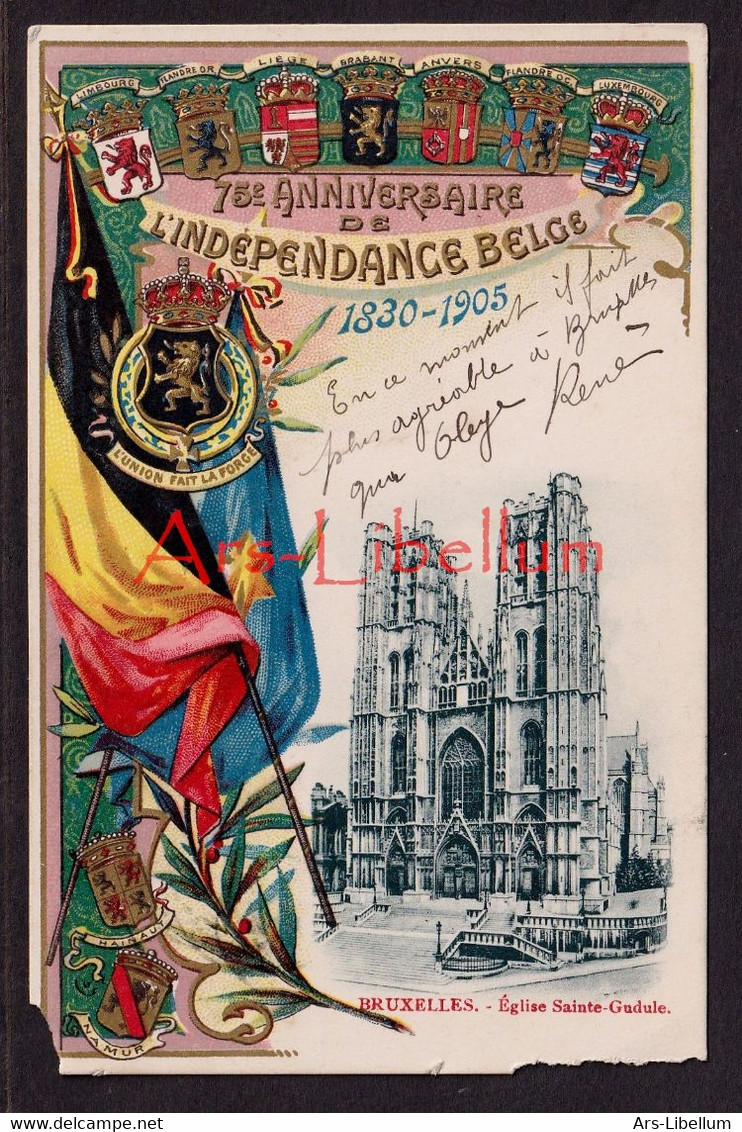 LIMBOURG FLANDRE OR. LIÈGE BRABANT ANVERS FLANDRE OC. LUXEMBOURG
75E ANNIVERSAIRE
DE
L'INDÉPENDANCE BELGE
1830-1905
En ce moment il fait
plus agréable à Bruxelles
que
René
L'UNION FAIT LA FORCE
Ars-Libellum
HAINAUT
NAMUR
BRUXELLES. - Église Sainte-Gudule.
Ars-Libellum